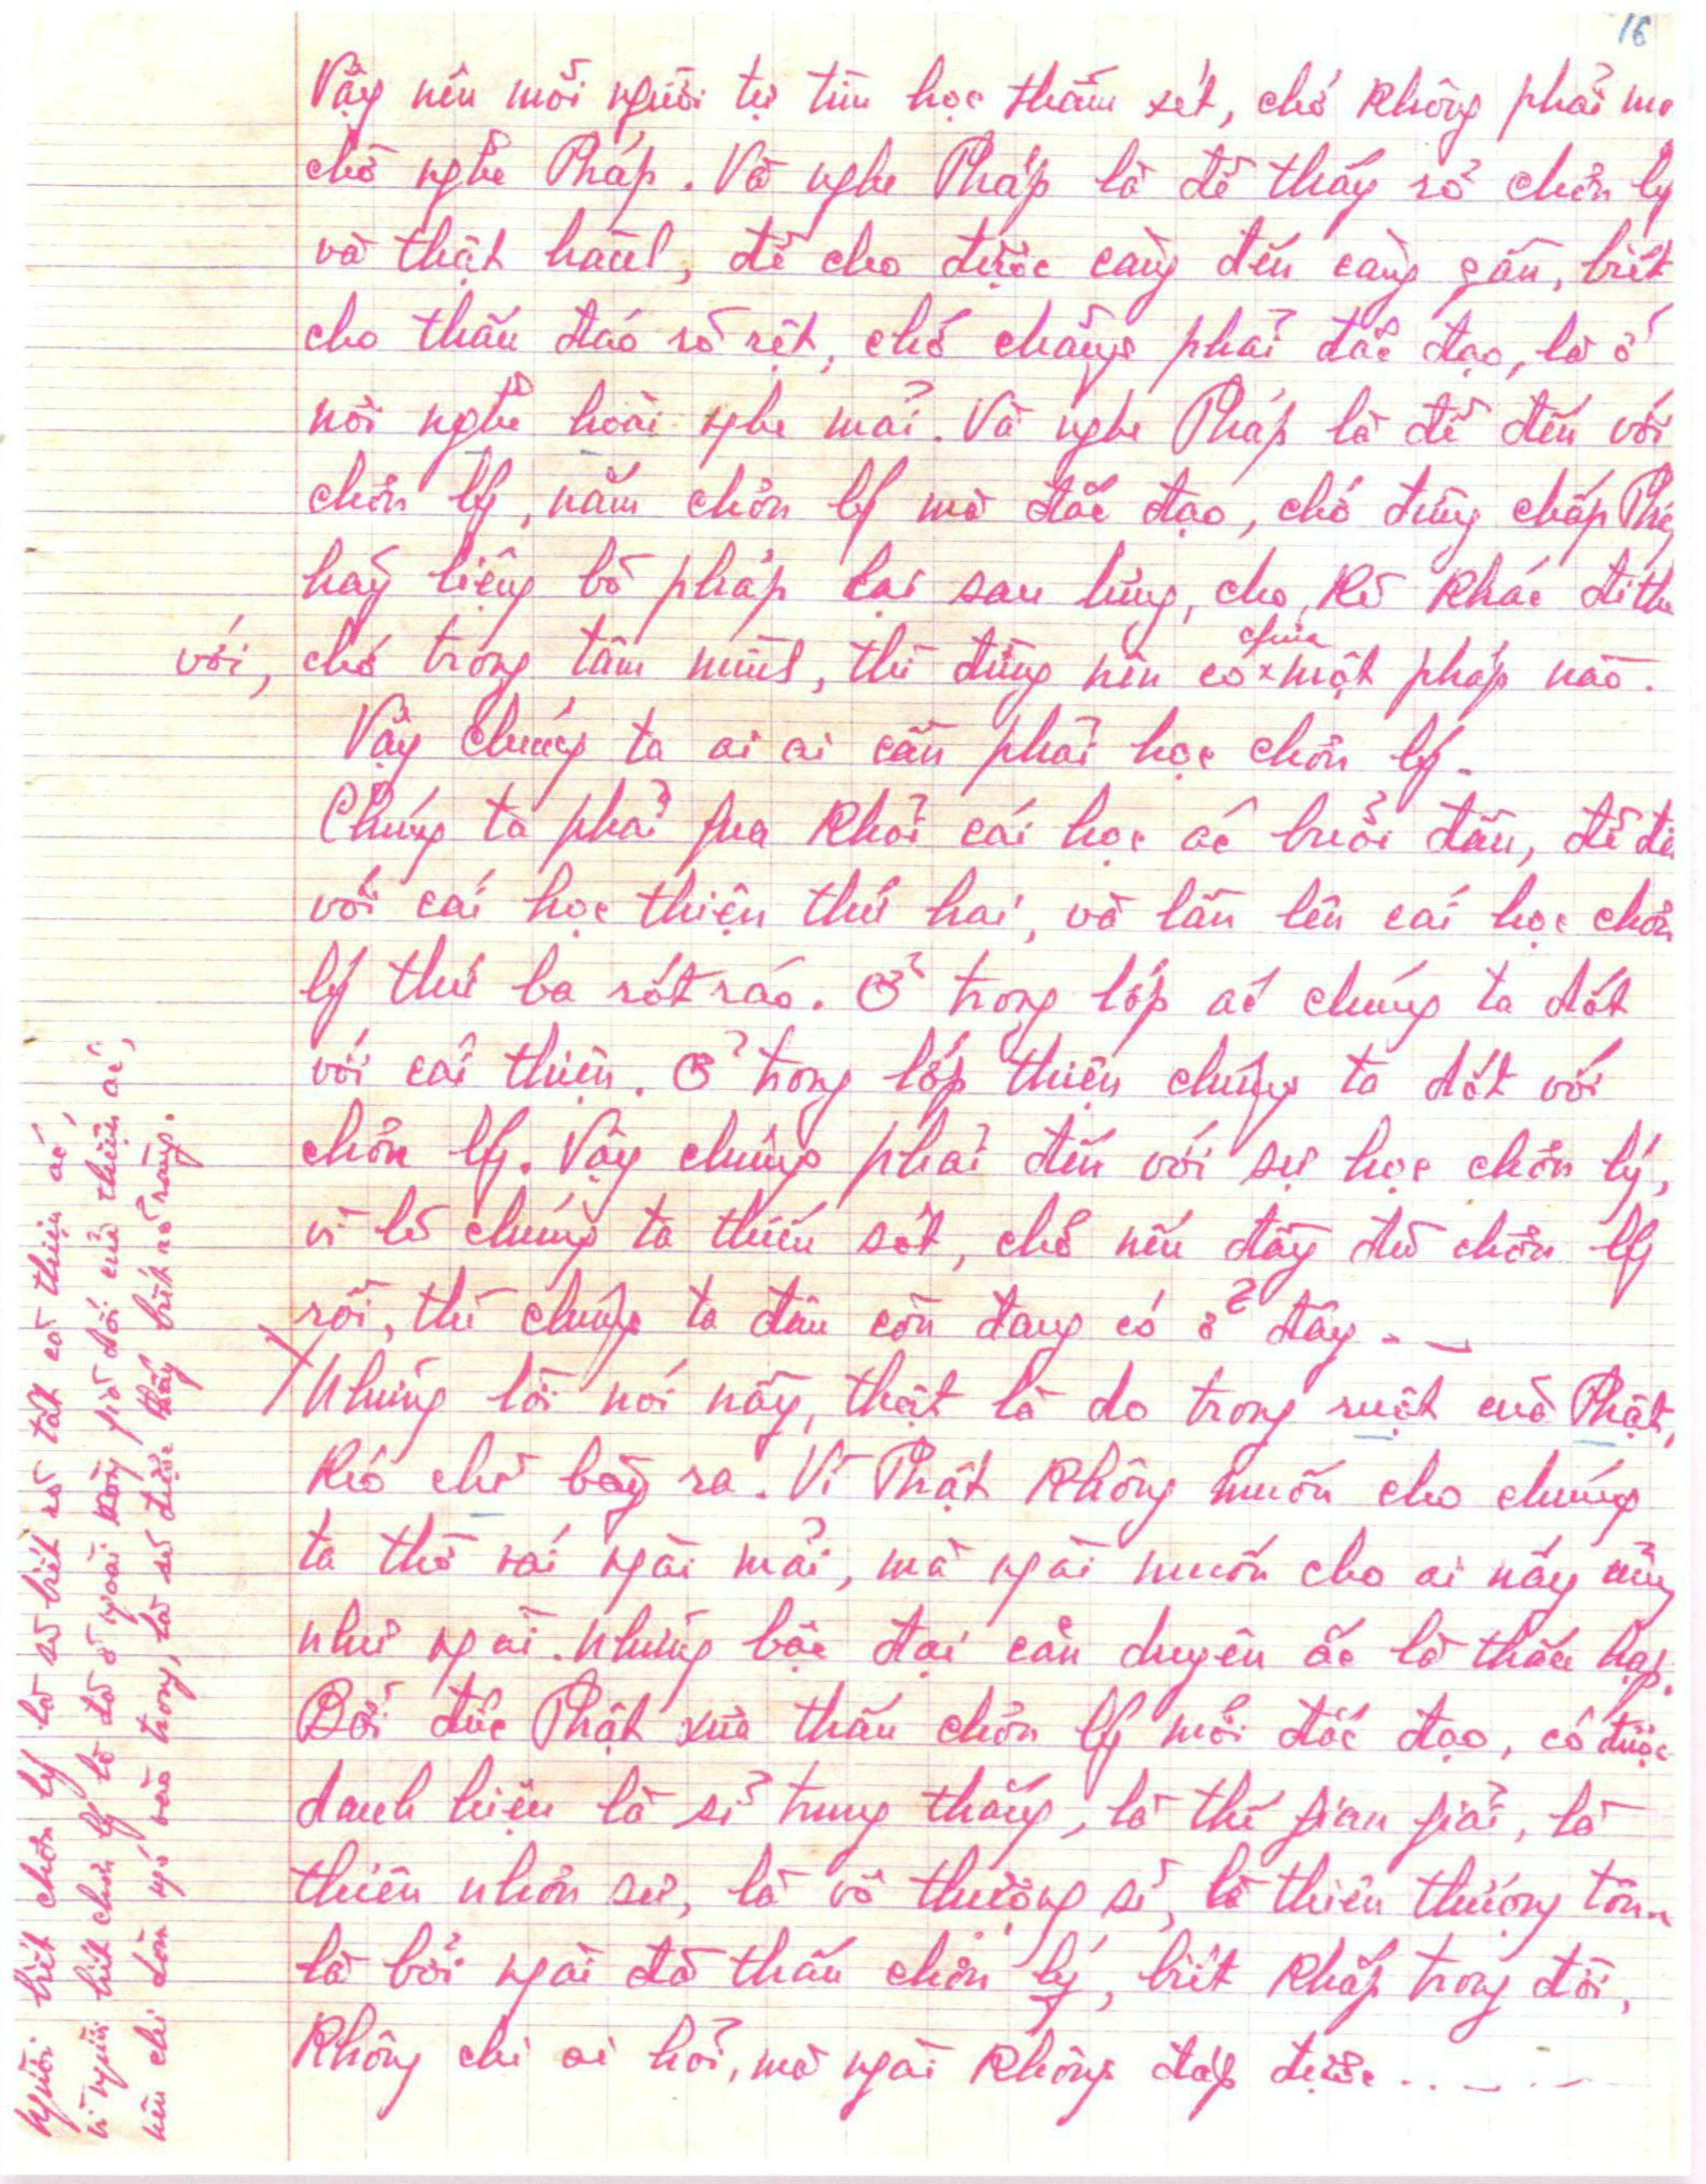 16
Vậy nên mỗi người tự tìm học thấm xét, chớ không phải mo
chờ nghe Pháp. Và nghe Pháp là để thấy rõ chơn lý
và thật hành, để cho được càng đến càng gần, biết
cho thấu đáo rõ rệt, chớ chẳng phải đắc đạo, là ở
nơi nghe hoài nghe mãi. Và nghe Pháp là để đến với
chơn lý, nắm chơn lý mà đắc đạo, chớ đừng chấp Phá
hãy liệng bỏ pháp lại sau lưng, cho kẻ khác đi th
với, chớ trong tâm mình, thì đừng nên có chứa một pháp nào.
Vậy chúng ta ai ai cần phải học chơn lý.
Chúng ta phải qua khỏi cái học ác buổi đầu, để đế
với cái học thiện thứ hai, và lần lên cái học chơn
lý thứ ba rốt ráo. Ở trong lớp ác chúng ta dốt
với cái thiện. Ở trong lớp thiện chúng ta dốt với
chơn lý. Vậy chúng phải đến với sự học chơn lý,
vì lẽ chúng ta thiếu sót, chớ nếu đầy đủ chơn lý
rồi, thì chúng ta đâu còn đang có ở đây.
Những lời nói nầy, thật là do trong ruột của Phật,
kéo chỉ bày ra. Vì Phật không muốn cho chúng
ta thờ vái ngài mãi, mà ngài muốn cho ai nấy cũng
như ngài. Những bậc đại căn duyên ắc là thấu hạp.
Bởi đức Phật xưa thấu chơn lý mới đắc đạo, có được
danh hiệu là sĩ trung thắng, là thế gian giải, là
thiên nhơn sư, là vô thượng sĩ, là thiên thượng tôn..
là bởi ngài đã thấu chơn lý, biết khắp trong đời,
không chi ai hỏi, mà ngài không đáp được......
Người biết chơn lý là sẽ biết rõ tất cả thiện ác,
vì người biết chơn lý là đã ở ngoài vòng giả dối của thiện ác,
nên chi dòm ngó vào trong, là sẽ được thấy biết rõ ràng.